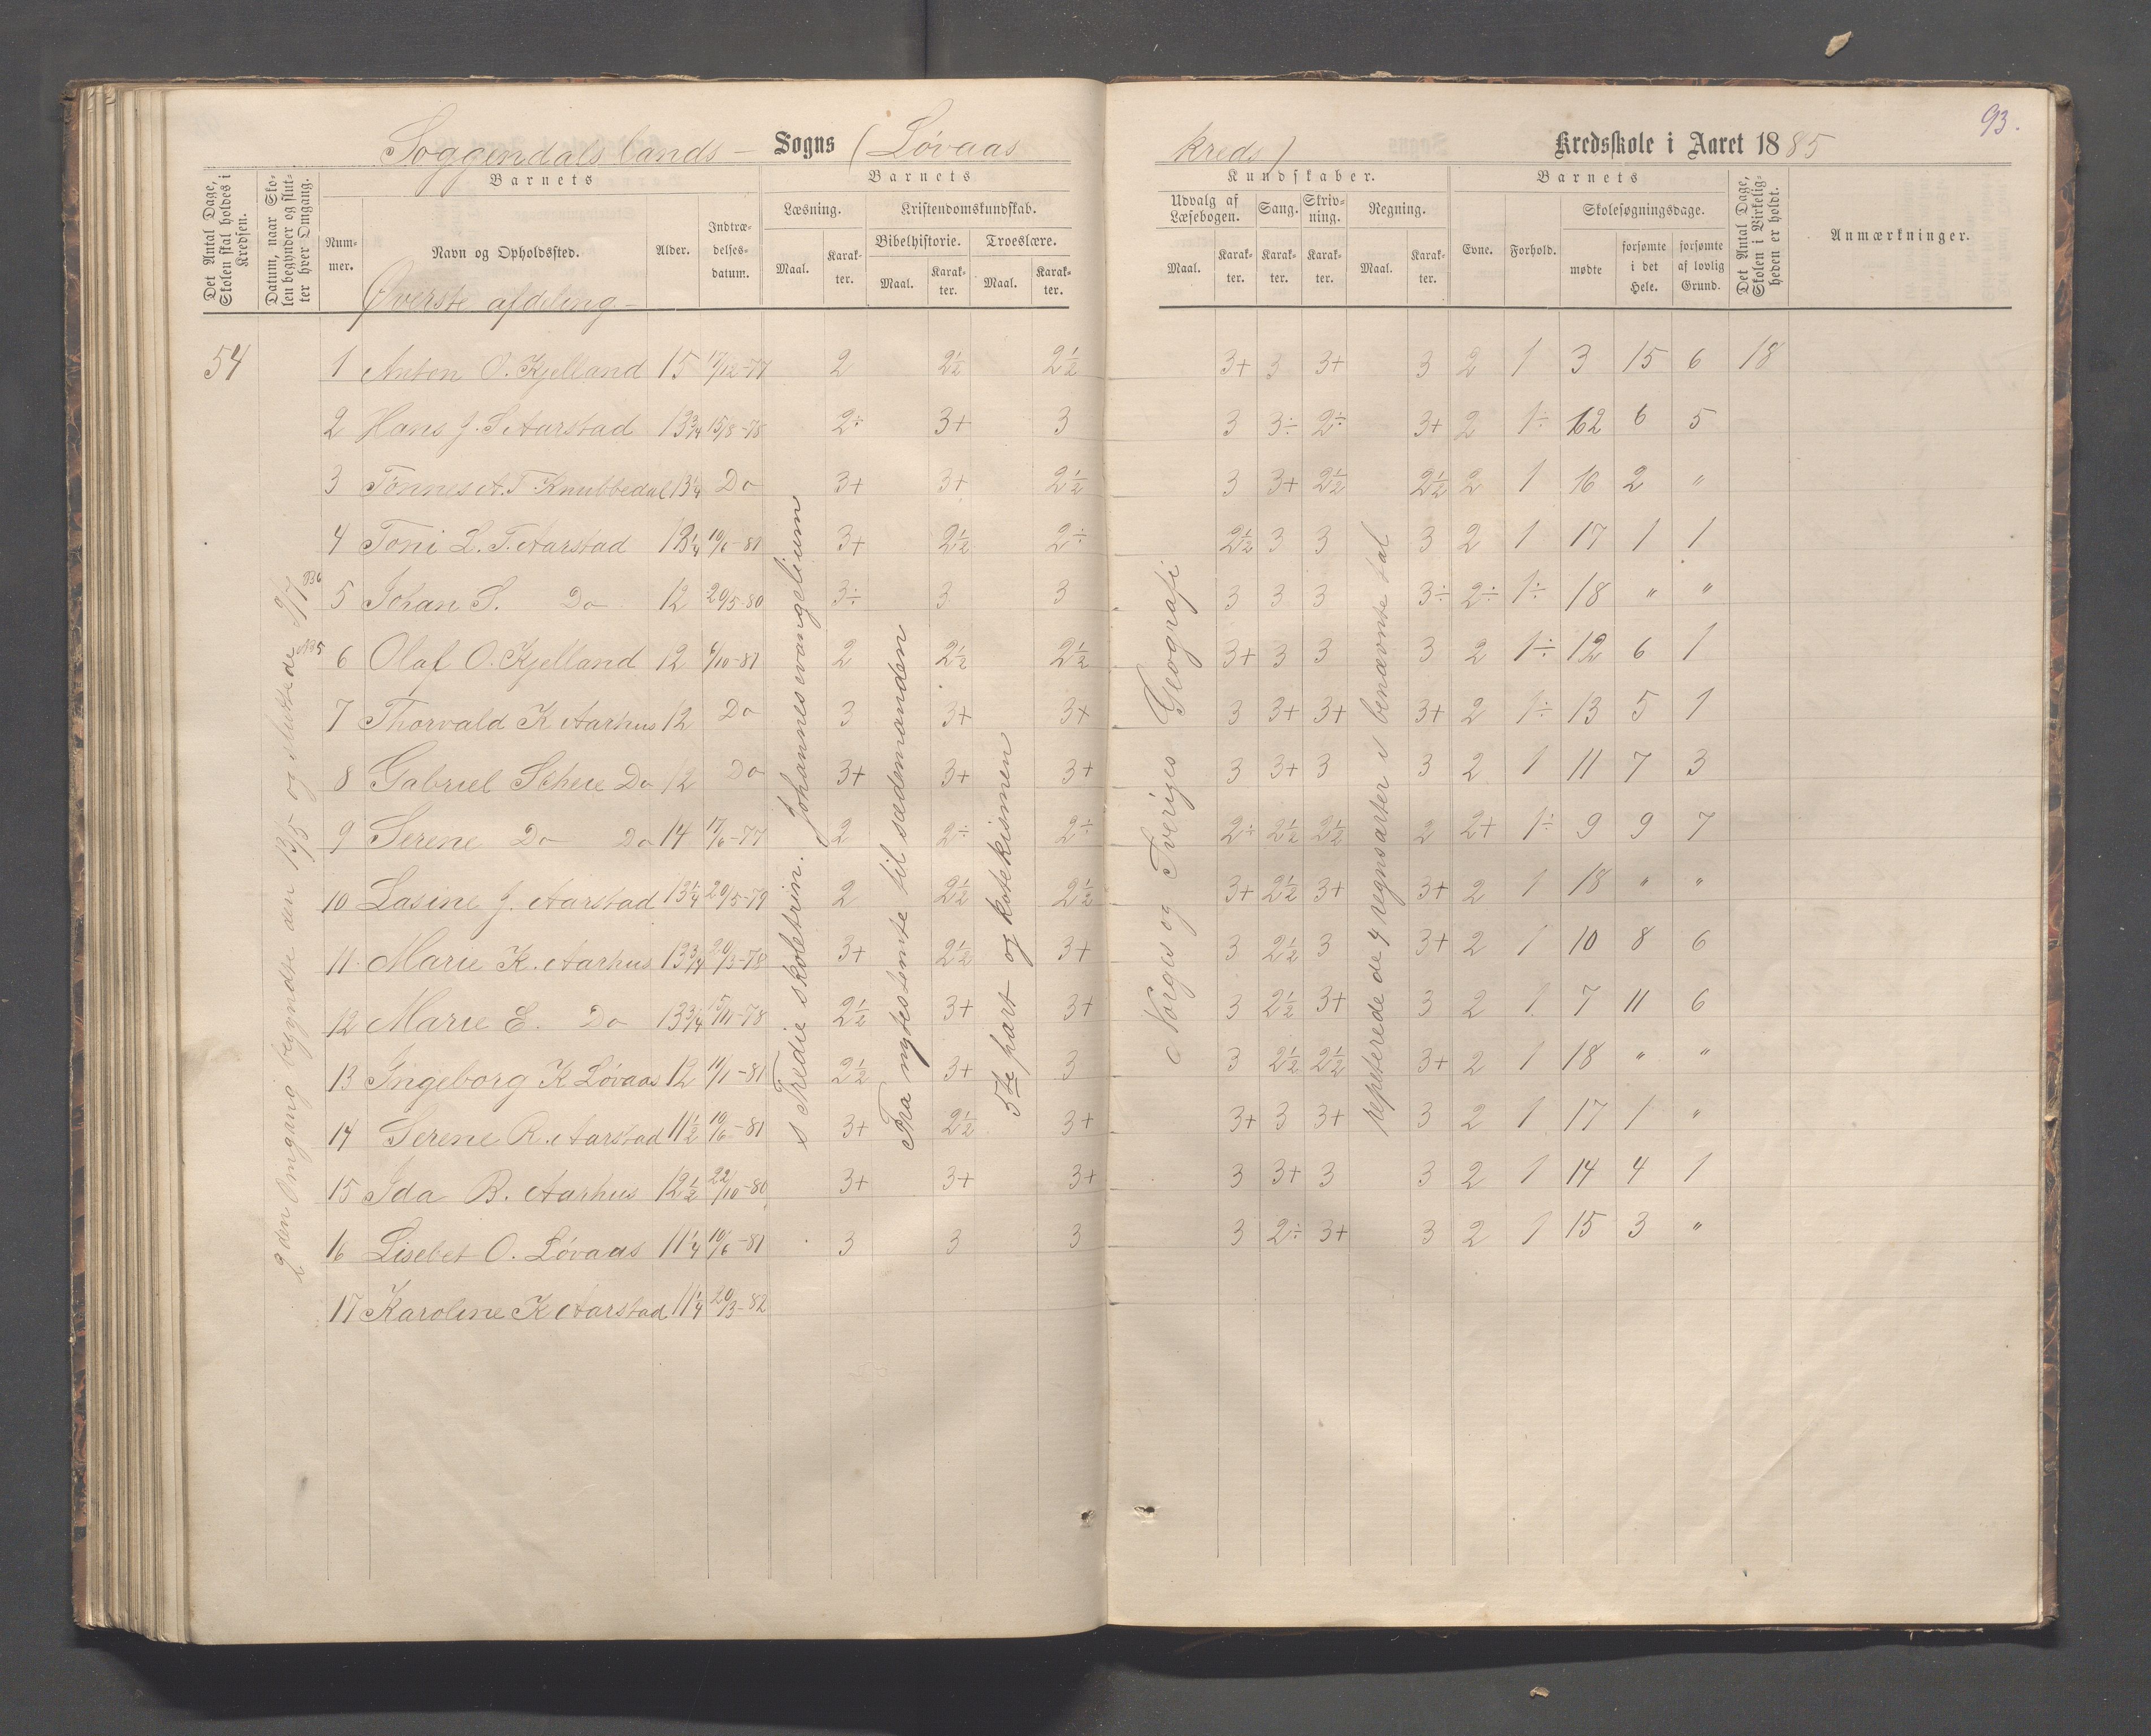 93.
Soggendals lands - Sogns (Løvaas kreds) Kredsskole i Aaret 1885
Det Antal Dage, Skolen skal holdes i Kredsen.
Datum, naar Skolen begynder og slutter hver Omgang.
Barnets
Nummer.
Navn og Opholdssted.
Alder.
Indtrædelsesdatum.
Barnets
Læsning.
Maal.
Karakter.
Kristendomskundskab.
Bibelhistorie.
Maal.
Karakter.
Troeslære.
Maal.
Karakter.
Kundskaber.
Udvalg af Læsebogen.
Maal.
Karakter.
Sang.
Karakter.
Skrivning.
Karakter.
Regning.
Maal.
Karakter.
Barnets
Evne.
Forhold.
Skolesøgningsdage.
mødte
forsømte i det Hele.
forsømte af lovlig Grund.
Det Antal Dage, Skolen i Virkeligheden er holdt.
Anmærkninger.
Øverste afdeling -
54 1 Anton O. Kjelland 15 17/12-77 2 2½ 2½ 3+ 3 3+ 3 2 1 3 15 6 18
2 Hans J. S Aarstad 13¾ 15/8-78 2÷ 3+ 3 3 3÷ 2÷ 3+ 2 1÷ 12 6 5
3 Tønnes A. T. Knubbedal 13¼ Do 3+ 3+ 2½ 3 3+ 2½ 2½ 2 1 16 2 "
4 Toni L. T. Aarstad 13¼ 10/6-81 3+ 2½ 2÷ 2½ 3 3 3 2 1 17 1 1
5 Johan S. Do 12 20/5-80 3÷ 3 3 3 3 3 3÷ 2÷ 1÷ 18 " "
6 Olaf O. Kjelland 12 6/10-81 2 2½ 2½ 3+ 3 3 3 2 1÷ 12 6 1
7 Thorvald K Aarhus 12 Do 3 3+ 3+ 3 3+ 3+ 3+ 2 1÷ 13 5 1
8 Gabriel Scheie Do 12 Do 3+ 3+ 3+ 3 3+ 3 3 2 1 11 7 3
9 Serene Do Do 14 17/6-77 2 2÷ 2÷ 2÷ 2½ 2½ 2 2+ 1÷ 9 9 7
10 Lasine J. Aarstad 13¼ 20/5-79 2 2½ 2½ 3+ 2½ 3+ 3+ 2 1 18 " "
11 Marie K. Aarhus 13¾ 20/3-78 3+ 2½ 3+ 3 2½ 3 3+ 2 1 10 8 6
12 Marie E. Do 13¾ 15/11-78 2½ 3+ 3+ 3 2½ 3+ 3 2 1 7 11 6
13 Ingeborg K Løvaas 12 11/1-81 2½ 3+ 3 3 2½ 2½ 3+ 2 1 18 " "
14 Serene R. Aarstad 11½ 10/6-81 3+ 2½ 3+ 3+ 3 3+ 3 2 1 17 1 "
15 Ida B. Aarhus 12½ 22/10-80 3+ 3+ 3+ 3 3+ 3 3 2 1 14 4 1
16 Lisebet O. Løvaas 11¼ 10/6-81 3 3 3 3 2÷ 3+ 3 2 1 15 3 "
17 Karoline K Aarstad 11¼ 20/3-82
2 den Omgang begyndte den 13/5 og sluttede 9/7
s Tredie skoletrin. Johannesevangelium
Fra nytestamte til sædemanden
5te part og katekismen
Norges og Sveriges Geografi
repeterede de 4 regnsarter i benævnte tal